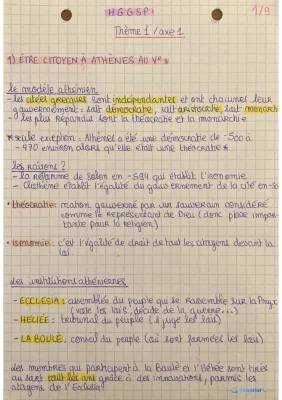 HGGSP:
1/9
Thème 1 / axe 1
1) ÊTRE CITOYEN À ATHÈNES AU Ve s
le modèle athénien
- les cités grecques sont indépendantes et ont chacunes leur
gouvernement : soit démocratie, soit aristocratie, soit monarchie
- les plus répandus sont la théocratie et la monarchie
* seule exception : Athènes a été une démocratie de -500 à
- 430 environ alors qu'elle était une théocratie *
les raisons ?
- la réforme de Solon en -594 qui établit l'isonomie
- Clisthène établit l'égalité du gouvernement de la cité en -50
• théocratie : nation gouvernée par un souverain considéré
comme le représentant de Dieu (donc place impor-
tante pour la religion)
• isonomie : c'est l'égalité de droit de tout les citoyens devant la
loi
les institutions athéniennes
- ECCLESIA : assemblée du peuple qui se rassemble sur la Pnyx
(vote les lois, décide de la guerre...)
- HÉLIÉE : tribunal du peuple (il juge les lois)
- LA BOULÈ : conseil du peuple (où sont formées les lois)
les membres qui participent à la Boulè et l'Héliée sont tirés
au sort tout les ans grâce à des parmis les
citoyens de l'Ecclesia